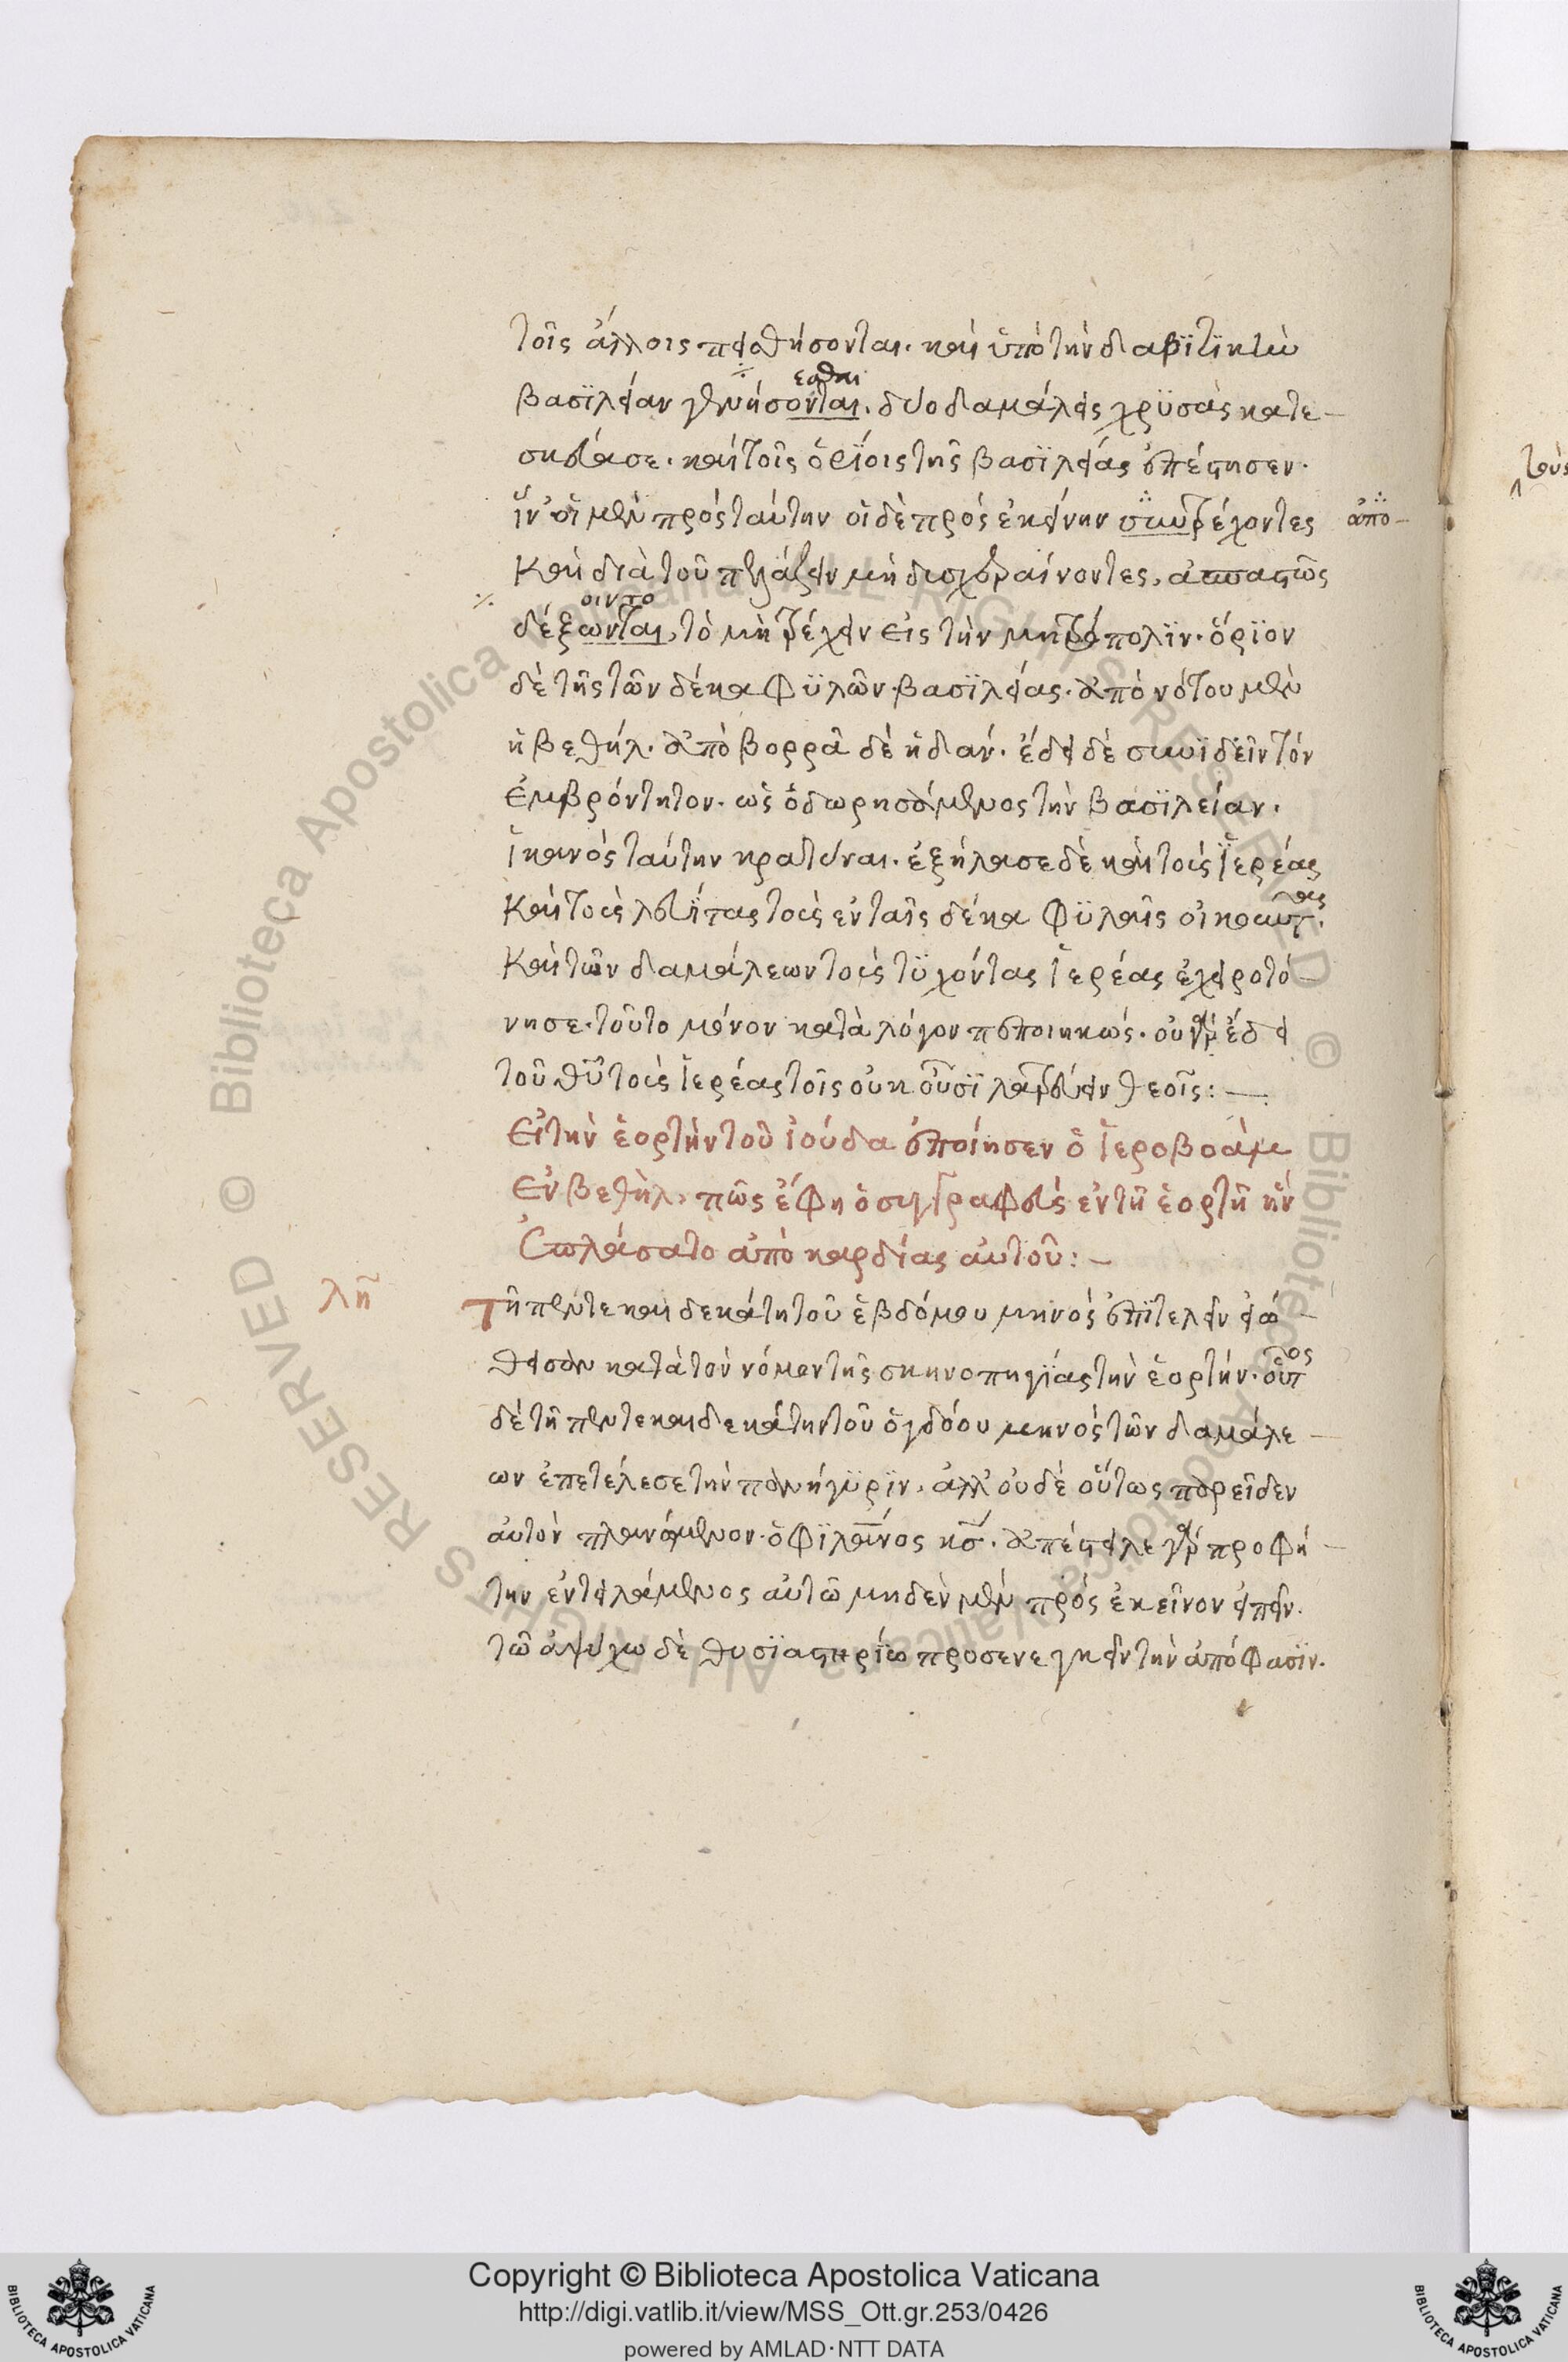 τοῖς ἄλλοις πεισθήσονται. καὶ ὑπὸ τὴν δαβϊτϊκὴν
εσθαι
βασϊλείαν γενήσονται. δύο δαμάλεις χρϋσὰς κατε-
σκεύασε. καὶ τοῖς ὁρΐοις τῆς βασϊλείας ἐπέστησεν.
ἵν' οἱ μὲν πρὸς ταύτην οἱ δὲ πρὸς ἐκείνην συντρέχοντες
ἀπο-
καὶ διὰ τοῦ πελάζειν μὴ δυσχεραίνοντες,
οιντο
δέξωνται, τὸ μὴ τρέχειν εἰς τὴν μητρόπολϊν. ὅρϊον
δὲ τῆς τῶν δέκα φϋλῶν βασϊλείας. ἀπὸ νότου μὲν
ἡ βεθήλ. ἀπὸ βορρᾶ δὲ ἡ δάν. ἔδει δὲ συνϊδεῖν τὸν
ἐμβρόντητον. ὡς ὁ δωρησάμενος τὴν βασϊλείαν.
ἱκανὸς ταύτην κρατύναι. ἐξήλασε δὲ καὶ τοὺς ἱερέας
καὶ τοὺς λευΐτας τοὺς ἐν ταῖς δέκα φϋλαῖς οἰκοῦντας.
καὶ τῶν δαμάλεων τοὺς τϋχόντας ἱερέας ἐχειροτό-
νησε. τοῦτο μόνον κατὰ λόγον πεποιηκώς. οὐ γὰρ ἔδει
τοῦ θῦ τοὺς ἱερέας τοῖς οὐκ οὖσϊ λατρεύειν θεοῖς: —
Εἰ τὴν ἑορτὴν τοῦ ἰούδα ἐποίησεν ὁ ἱεροβοὰμ
ἐν βεθὴλ, πῶς ἔφη ὁ συγγραφεὺς ἐν τῆ ἑορτῆ ἣν
ἐπλάσατο ἀπὸ καρδίας αὐτοῦ: —
λη
Τῆ πεντεκαιδεκάτη τοῦ ἑβδόμου μηνὸς ἐπϊτελεῖν εἰώ-
θεισαν κατὰ τὸν νόμον τῆς σκηνοπηγΐας τὴν ἑορτήν. οὗτος
δὲ τῆ πεντεκαιδεκάτη τοῦ ὀγδόου μηνὸς τῶν δαμάλε-
ων ἐπετέλεσε τὴν πανήγϋρϊν. ἀλλ' οὐδὲ οὕτως παρεῖδεν
αὐτὸν πλανώμενον. ὁ φϊλανος κσ. ἀπέστειλε γὰρ προφή-
την ἐντειλάμενος αὐτῶ μηδὲν μὲν πρὸς ἐκεῖνον εἰπεῖν.
τῶ ἀψύχω δὲ θυσϊαστηρΐω προσενεγκεῖν τὴν ἀπόφασϊν.
τοὺς
Copyright © Biblioteca Apostolica Vaticana
http://digi.vatlib.it/view/MSS_Ott.gr.253/0426
powered by AMLAD·NTT DATA
BIBLIOTECA APOSTOLICA VATICANA
BIBLIOTECA APOSTOLICA VATICANA